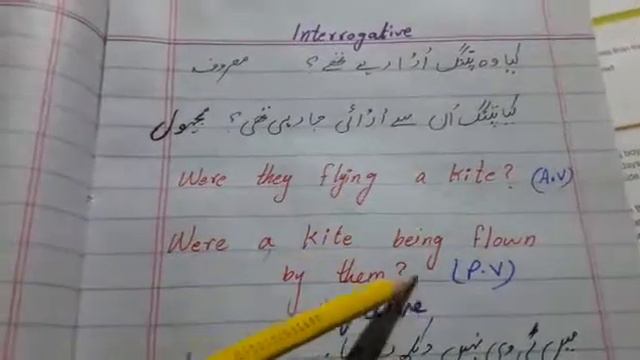 Interrogative
کیا وہ پتنگ اُڑا رہے تھے؟ معروف
کیا پتنگ اُن سے اُڑائی جا رہی تھی؟ مجہول
Were they flying a kite? (A.V)
Were a kite being flown
by them? (P.V)
میں ٹی وی نہیں دیکھ